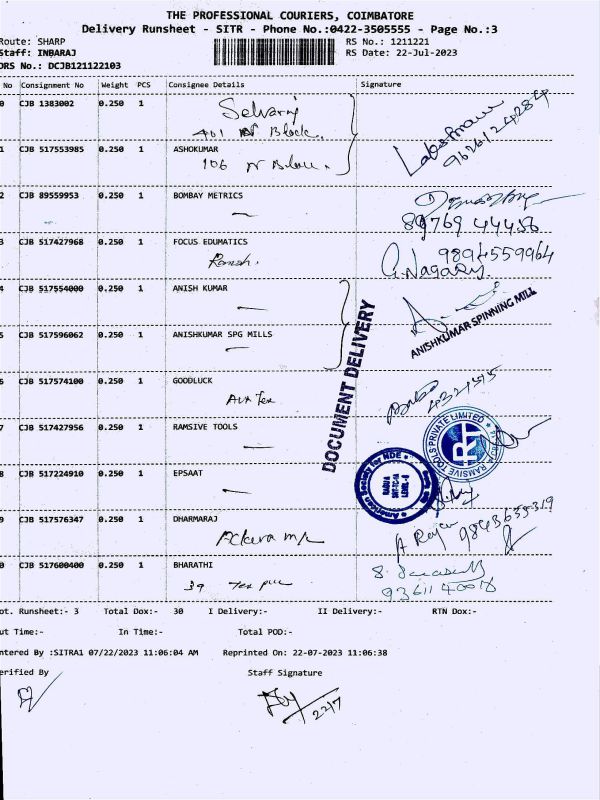 THE PROFESSIONAL COURIERS, COIMBATORE
Delivery Runsheet - SITR - Phone No.:0422-3505555 - Page No.:3
Route: SHARP RS No.: 1211221
Staff: INBARAJ RS Date: 22-Jul-2023
DRS No.: DCJB121122103
No Consignment No Weight PCS Consignee Details Signature
0 CJB 1383002 0.250 1 Selvaraj
401 N Block.
9626124284
1 CJB 517553985 0.250 1 ASHOKUMAR
106 N Block.
2 CJB 89559953 0.250 1 BOMBAY METRICS
89769 44456
3 CJB 517427968 0.250 1 FOCUS EDUMATICS 9894559964
Ramesh. G. Nagaraj.
4 CJB 517554000 0.250 1 ANISH KUMAR
ANISHKUMAR SPINNING MILL
DOCUMENT DELIVERY
5 CJB 517596062 0.250 1 ANISHKUMAR SPG MILLS
6 CJB 517574100 0.250 1 GOODLUCK
7 CJB 517427956 0.250 1 RAMSIVE TOOLS
RAMSIVE TOOLS PRIVATE LIMITED
RT
8 CJB 517224910 0.250 1 EPSAAT
American Society for NDE
9 CJB 517576347 0.250 1 DHARMARAJ
A Raja 9843635319
0 CJB 517600400 0.250 1 BHARATHI
39
9361140078
ot. Runsheet:- 3 Total Dox:- 30 I Delivery:- II Delivery:- RTN Dox:-
ut Time:- In Time:- Total POD:-
ntered By :SITRA1 07/22/2023 11:06:04 AM Reprinted On: 22-07-2023 11:06:38
erified By Staff Signature
22/7